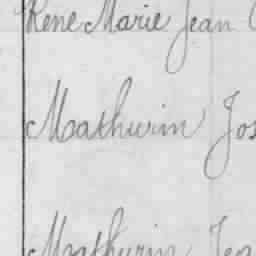 René Marie Jean
Mathurin Jos
Mathurin Jea